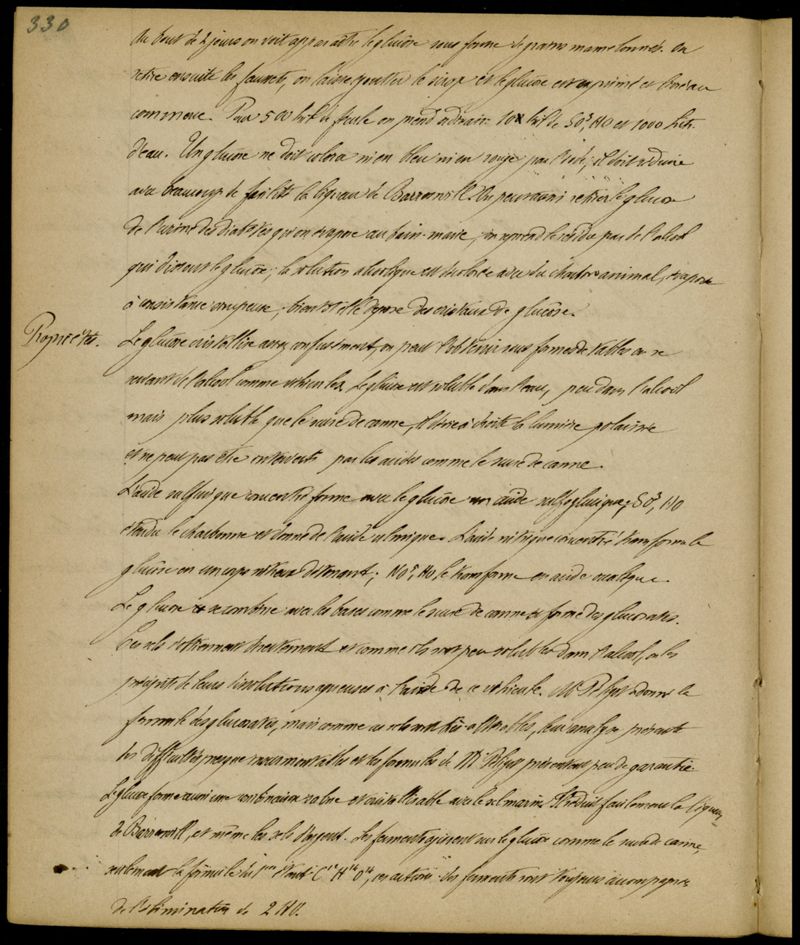 330
Au bout de 2 jours on voit apparaître le glucôse sous forme de grains mamelonnés. On
retire ensuite les faussets, on laisse goutter le sirop et le glucôse est exprimé et livré au
commerce. Pour 500 kil. de fécule on prend ordinair. 10 kil. de SO³, HO et 1000 litr.
d'eau. Un glucôse ne doit colorer ni en bleu ni en rouge par l'iode; il doit réduire
avec beaucoup de facilité la liqueur de Barreswill. On peut aussi retirer le glucose
de l'urine des diabétiques qu'on évapore au bain-marie, on reprend le résidu par de l'alcool
qui dissout le glucôse; la solution alcoolique est décolorée avec du charbon animal, évaporée
à consistance sirupeuse, bientôt elle dépose des cristaux de glucôse.
Propriétés.
Le glucôse cristallise assez confusément, on peut l'obtenir sous forme de tables en se
servant de l'alcool comme véhicule. Le glucôse est soluble dans l'eau, peu dans l'alcool
mais plus soluble que le sucre de canne, il dévie à droite la lumière polarisée
et ne peut pas être interverti par les acides comme le sucre de canne.
L'acide sulfurique concentré forme avec le glucôse un acide sulfoglucique; SO³, HO
étendu le charbonne et donne de l'acide ulmique. L'acide nitrique concentré transforme le
glucôse en un corps nitreux détonant; NO⁵, HO le transforme en acide oxalique.
Le glucose se combine avec les bases comme le sucre de canne et forme des glucosates.
Ces sels s'obtiennent directement et comme ils sont peu solubles dans l'alcool, on les
précipite de leurs dissolutions aqueuses à l'aide de ce véhicule. Mr Péligot a donné la
formule des glucosates, mais comme ces sels sont très altérables, leur analyse présente
des difficultés presque insurmontables et les formules de Mr Péligot présentent peu de garantie.
Le glucose forme aussi une combinaison saline et cristallisable avec le sel marin. Il réduit facilement la liqueur
de Barreswill, et même les sels d'argent. Les ferments agissent sur le glucose comme le sucre de canne,
seulement la formule du 1er étant C¹² H¹⁴ O¹⁴, en action des ferments sont toujours accompagnés
de l'élimination de 2 HO.